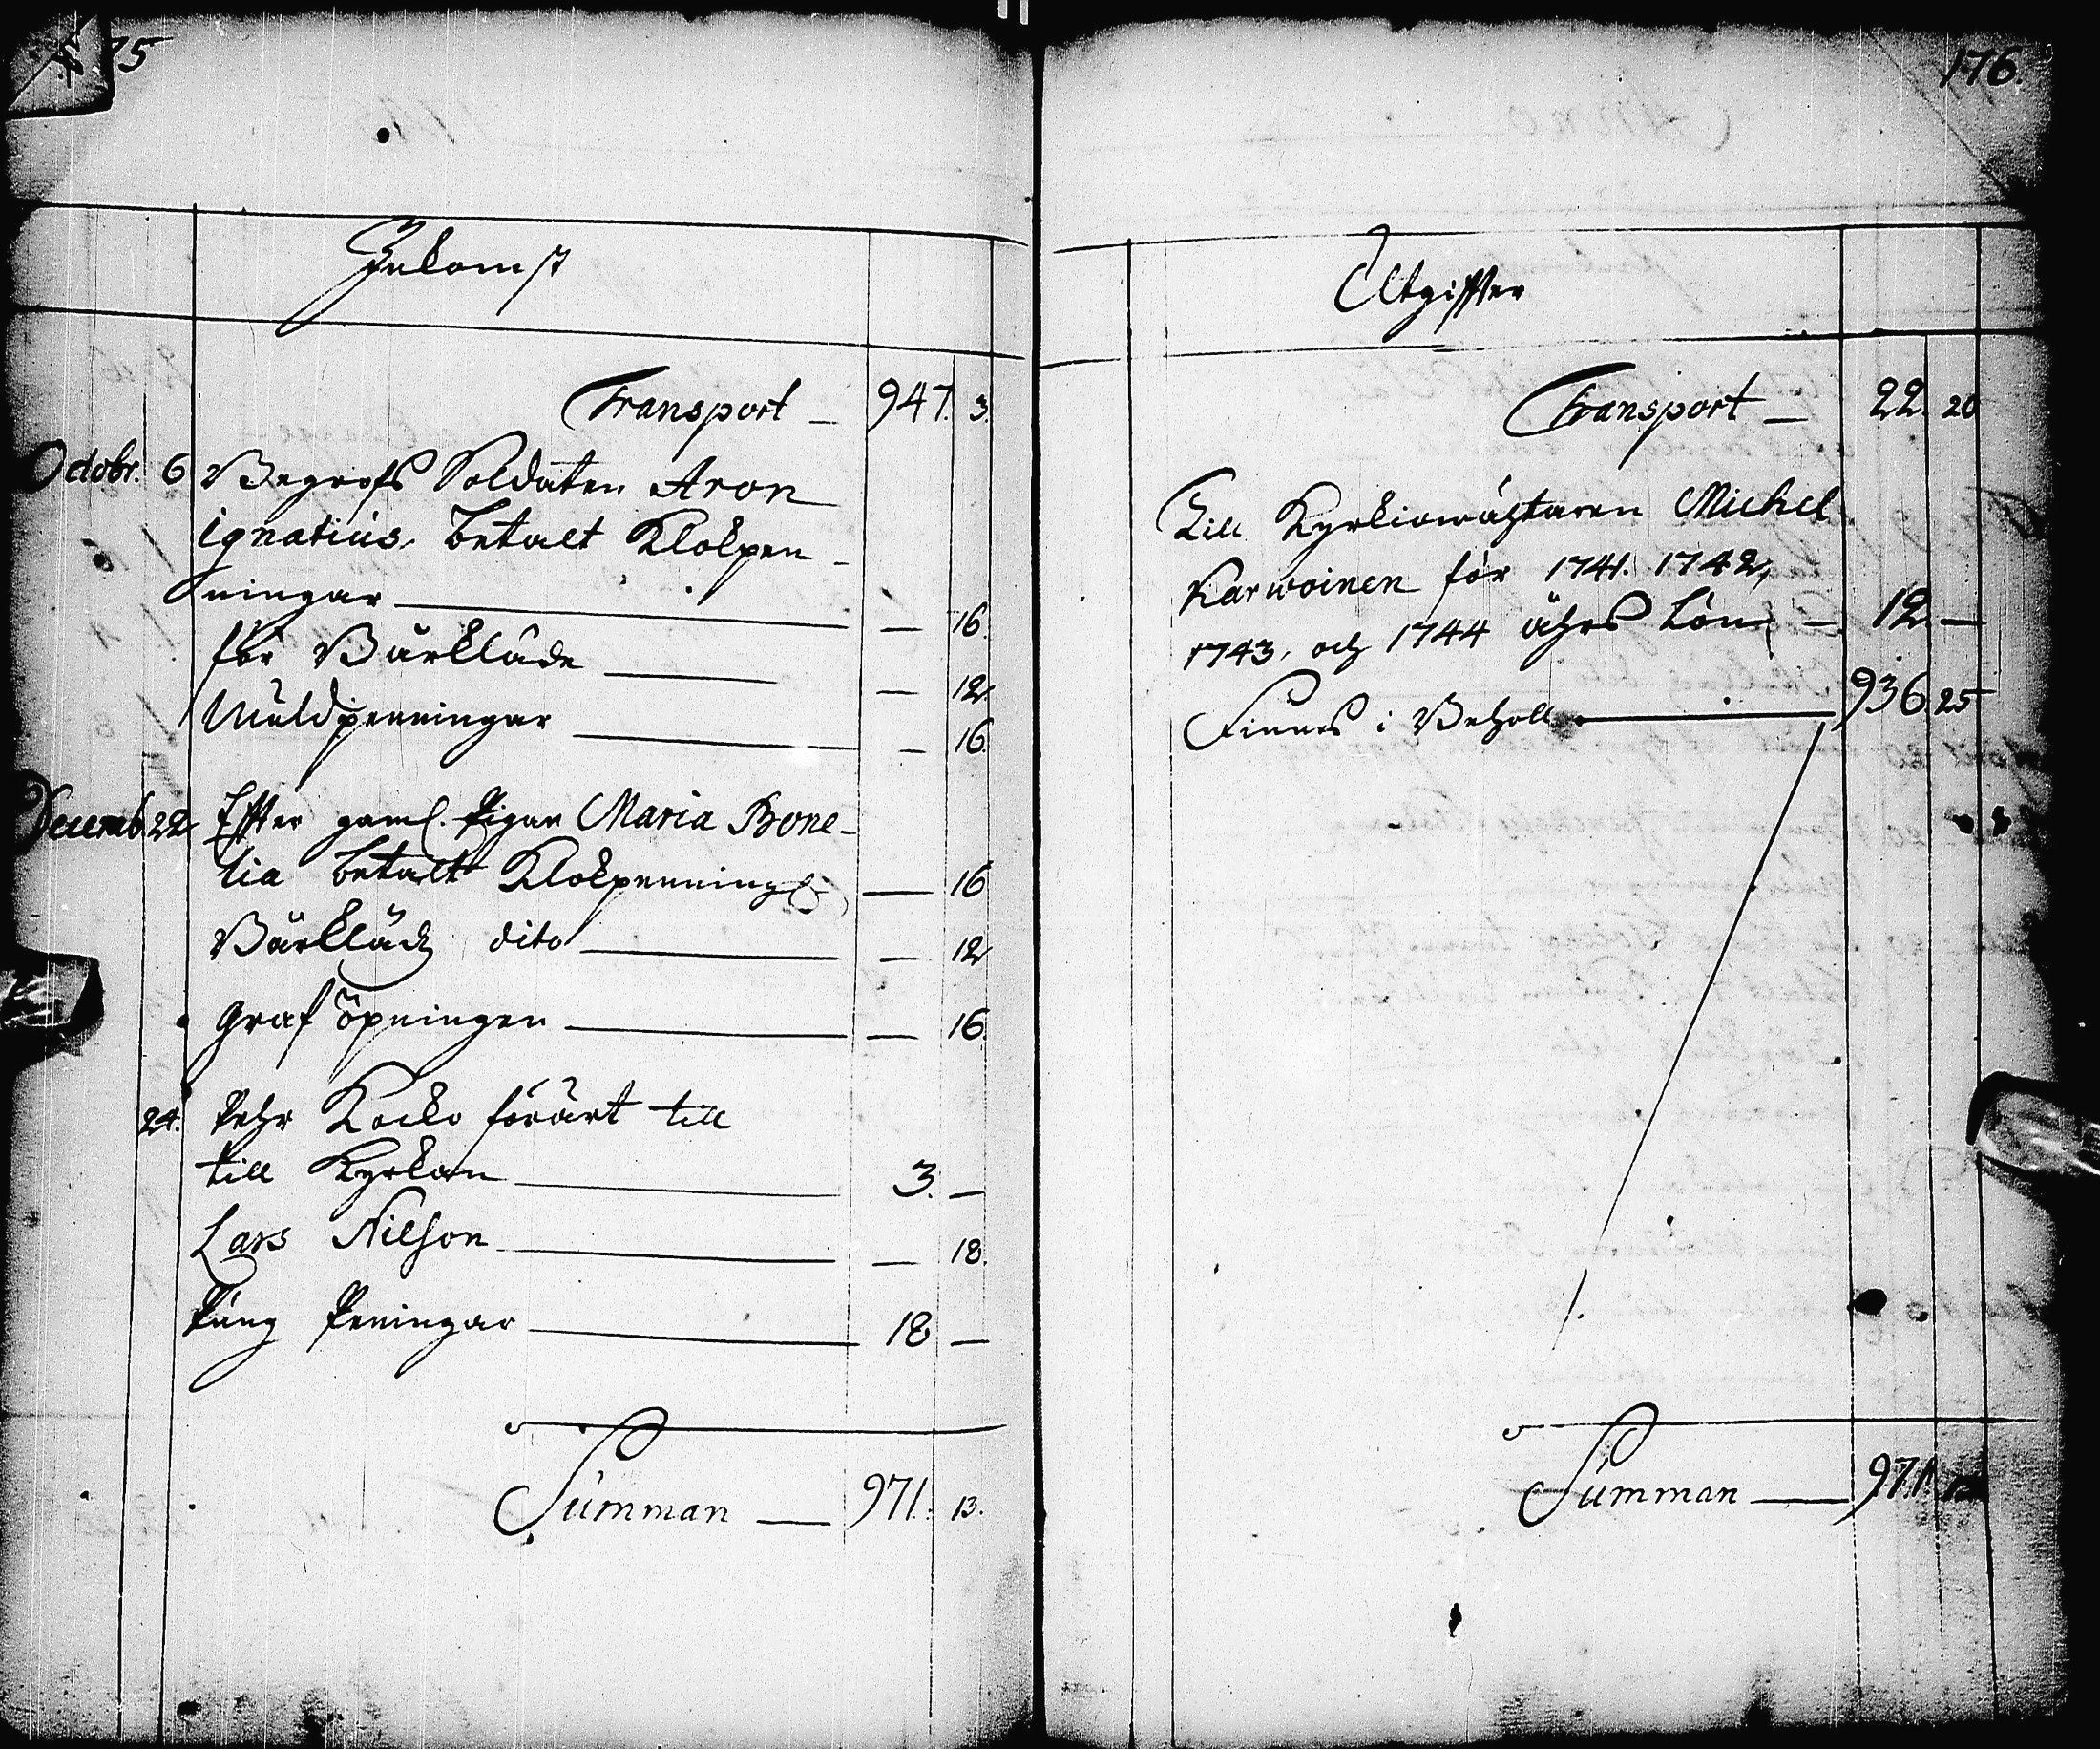 175
Inkomst
Transport — 947. 3.
Octobr. 6 Begrofs Soldaten Aron
Ignatius, betalt Klokpen-
ningar — — 16.
för Bårkläde — — 12.
Muldpenningar — — 16.
Decemb. 22 Effter gaml. Pigan Maria Bone-
lia betalt Klokpenning — 16
Bårkläd dito — — 12
Graföpningen — — 16.
24. Pehr Kocko förärt till
till Kyrkan — 3. —
Lars Nilson — — 18.
Pung Peningar — 18 —
Summan — 971. 13.
176.
Utgiffter
Transport — 22. 20
Till Kyrkiowächtaren Michel
Karwoinen för 1741. 1742,
1743, och 1744 åhrs Lön, — 12. —
Finnes i Behold — 936. 25
Summan — 971. 13